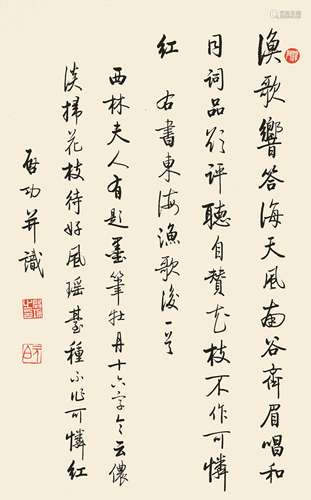 渔歌響答海天风南谷齊眉唱和
同词品欲评聽自赞花枝不作可憐
红　右書東海漁歌後一首
西林夫人有題墨筆牡丹十六字令云儂
淡掃花枝待好風瑶臺種不作可憐红
啓功并識